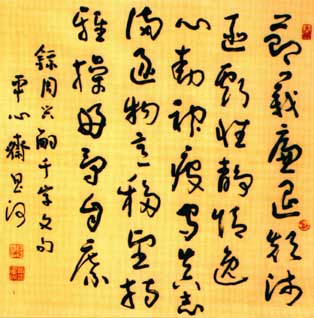 節義廉退顛沛
匪虧性靜情逸
心動神疲守真志
滿逐物意移堅持
雅操好爵自縻
錄周興嗣千字文句
平心齋